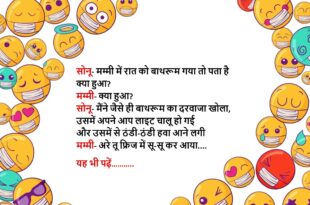 सोनू- मम्मी में रात को बाथरूम गया तो पता है
क्या हुआ?
मम्मी- क्या हुआ?
सोनू- मैंने जैसे ही बाथरूम का दरवाजा खोला,
उसमें अपने आप लाइट चालू हो गई
और उसमें से ठंडी-ठंडी हवा आने लगी
मम्मी- अरे तू फ्रिज में सू-सू कर आया....
यह भी पढ़ें...........